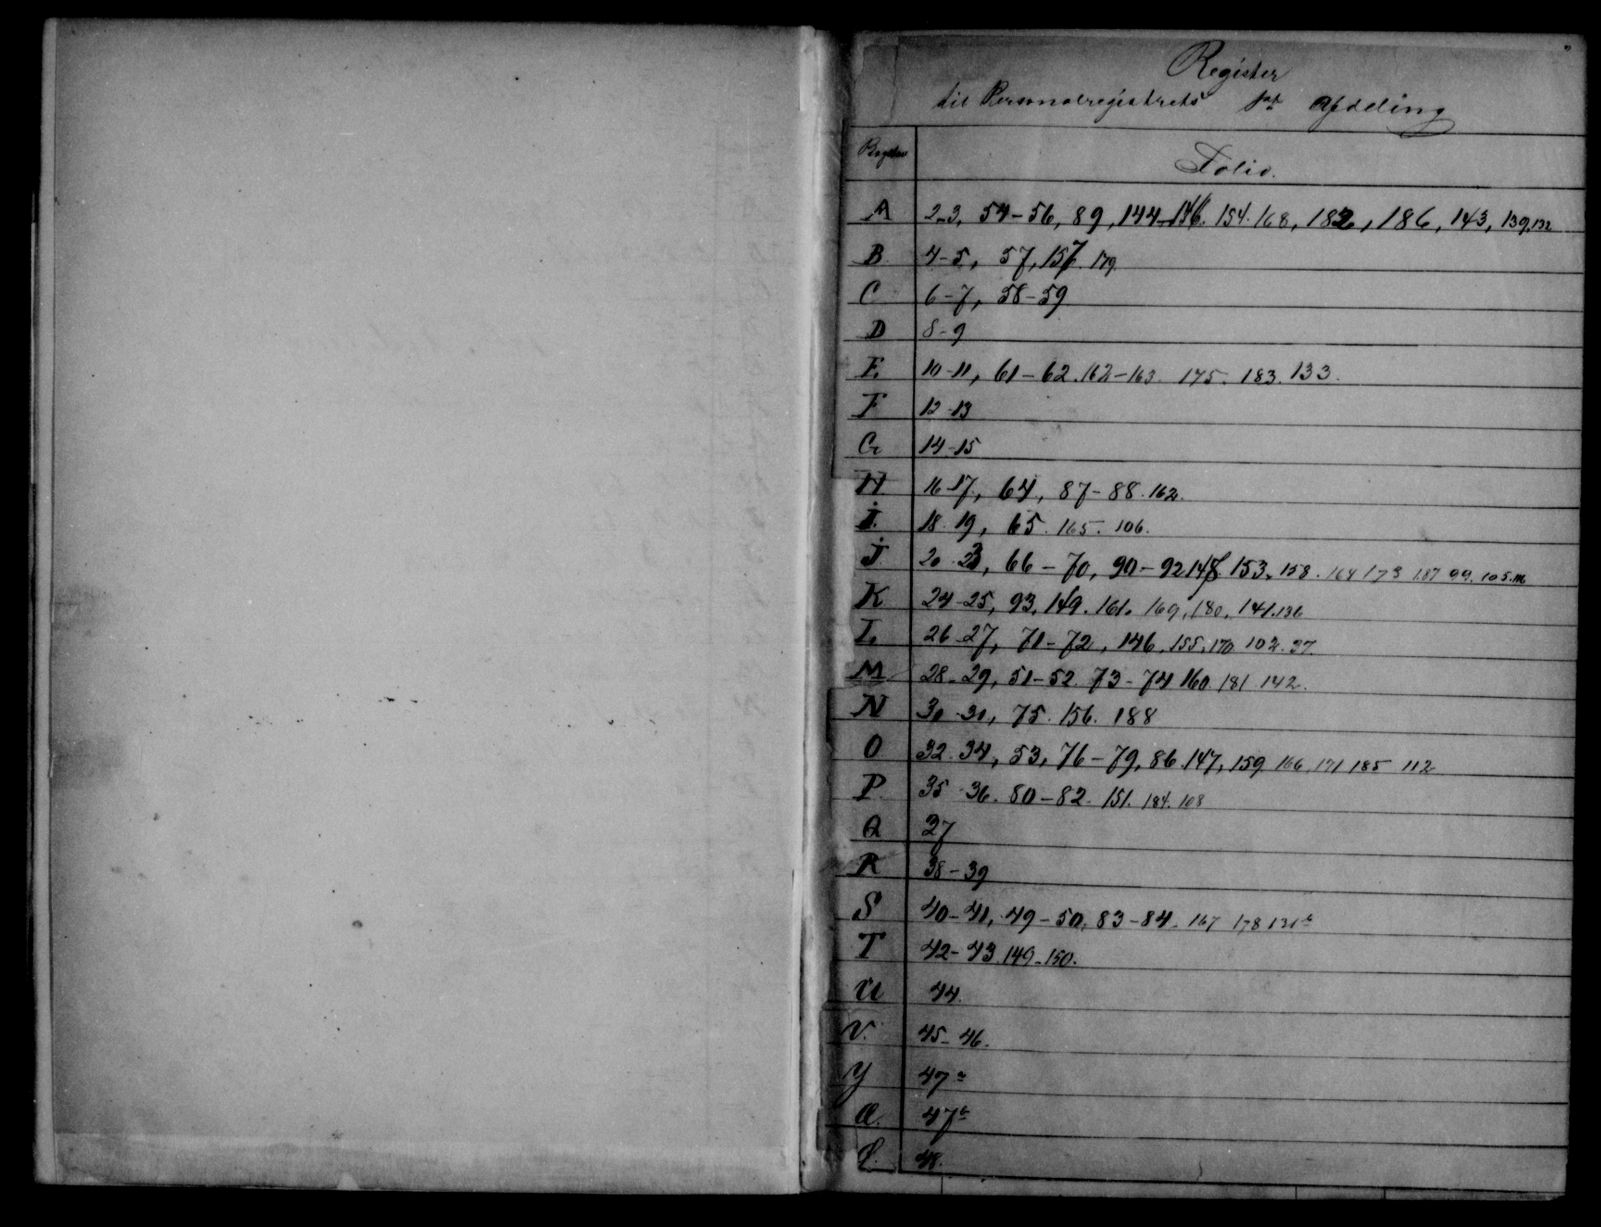 Register
til Personalregistrets 1ste Afdeling
Folio.
A 2-3, 54-56, 89, 144-146. 154. 168, 182, 186, 143, 139, 132
B. 4-5, 57, 157. 179
C 6-7, 58-59
D 8-9
E. 10-11, 61-62. 162-163. 175. 183. 133.
F 12-13
G 14-15
H 16-17, 64, 87-88. 162.
I. 18-19, 65. 165. 106.
J 20-23, 66-70, 90-92 148. 153. 158. 164 173 187 99. 105.
K 24-25, 93, 149. 161. 169, 180, 141. 136
L. 26-27, 71-72, 146. 155. 170 102. 37.
M 28-29, 51-52. 73-74 160 181 142.
N 30-31, 75. 156. 188
O 32-34, 53, 76-79, 86. 147, 159 166, 171 185 112
P. 35-36. 80-82. 151. 184. 108
Q 37
R 38-39
S 40-41, 49-50, 83-84. 167 178
T 42-43. 149-150.
U 44.
V. 45-46.
Y 47a
Æ. 47b
Ø. 48.